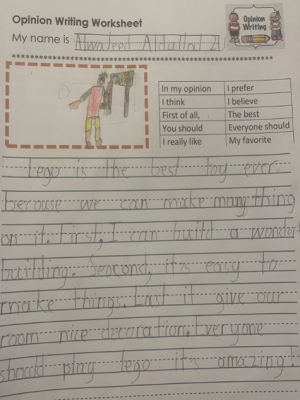 Opinion Writing Worksheet
Opinion
Writing
My name is Alwaleed
In my opinion I prefer
I think I believe
First of all, The best
You should Everyone should
I really like My favorite
Lego is the best toy ever
because we can make many thing
on it. First, I can build a wonderful
building. Second, it's easy to
make things. Last it give our
room nice decoration. Everyone
should play lego it's amazing!